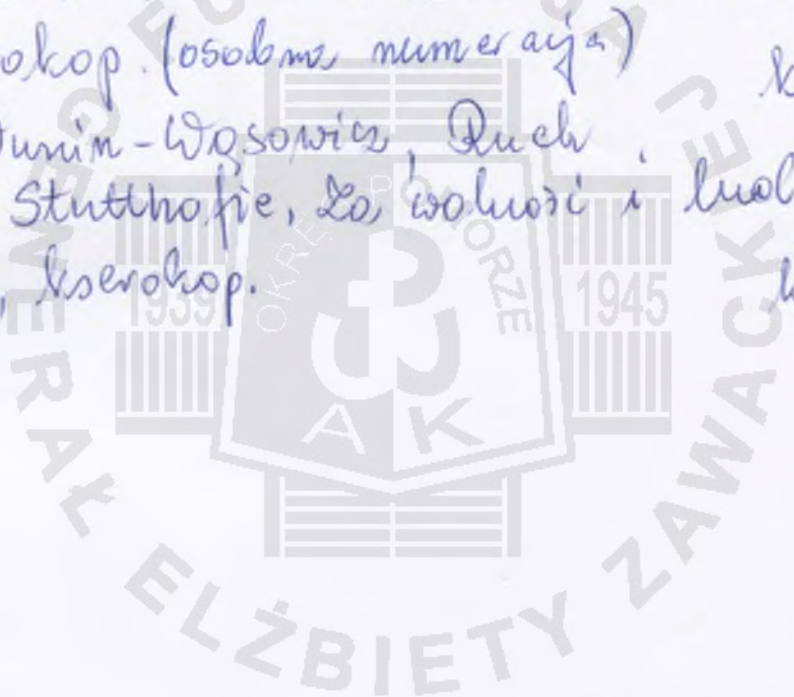 okop. (osobna numeracja)
unin-Wąsowicz, Ruch
Stutthofie, Za wolność i lud
, kserokop.
1939
1945
OKRĘG POMORZE
AK
GENERAŁ ELŻBIETY ZAWACKIEJ